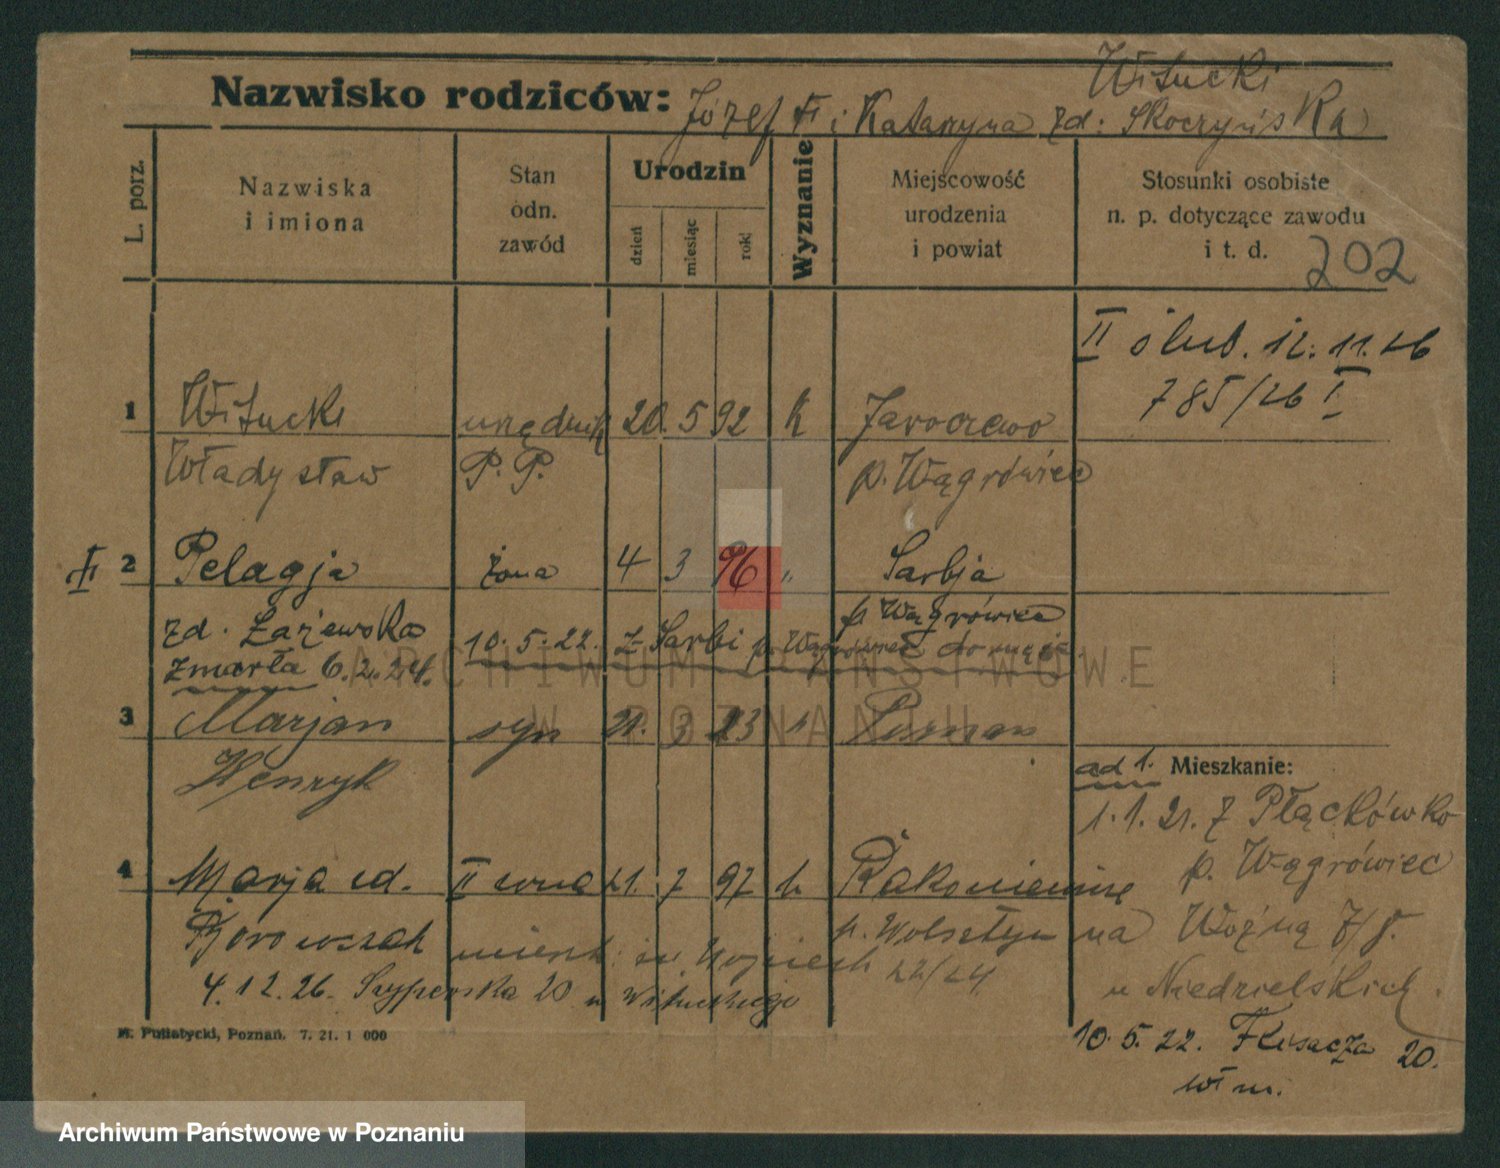 Witucki
Nazwisko rodziców: Józef i Katarzyna zd: Skoczyńska
L. porz.
Nazwiska i imiona
Stan odn. zawód
Urodzin
dzień miesiąc rok
Wyznanie
Miejscowość urodzenia i powiat
Stosunki osobiste n. p. dotyczące zawodu i t. d.
202
II ślub. 12.11.26
785/26 I
1 Witucki urzędnik 20. 5 92 k Jaroszewo
Władysław P. P. p. Wągrówiec
2 Pelagja żona 4 3 96 " Sarbja
p. Wągrówiec
zd. Łażewska 10.5.22. z Sarbi p. Wągrówiec do męża
zmarła 6.2.24.
3 Marjan syn 21. 3 23 Poznań
Henryk
ad 1. Mieszkanie:
1.1.21. z Płąckówko
p. Wągrówiec
na Woźną 7/8.
u Niedzielskich.
10.5.22. 20.
wł m.
4 Marja ud. II żona 21. 7 97 k.
p. Wolsztyn
Borowszak św Wojciech 22/24
4.12.26. Szyperska 20 u Wituckiego
Pullatycki, Poznań. 7. 21. 1 000
ARCHIWUM PAŃSTWOWE
W POZNANIU
Archiwum Państwowe w Poznaniu